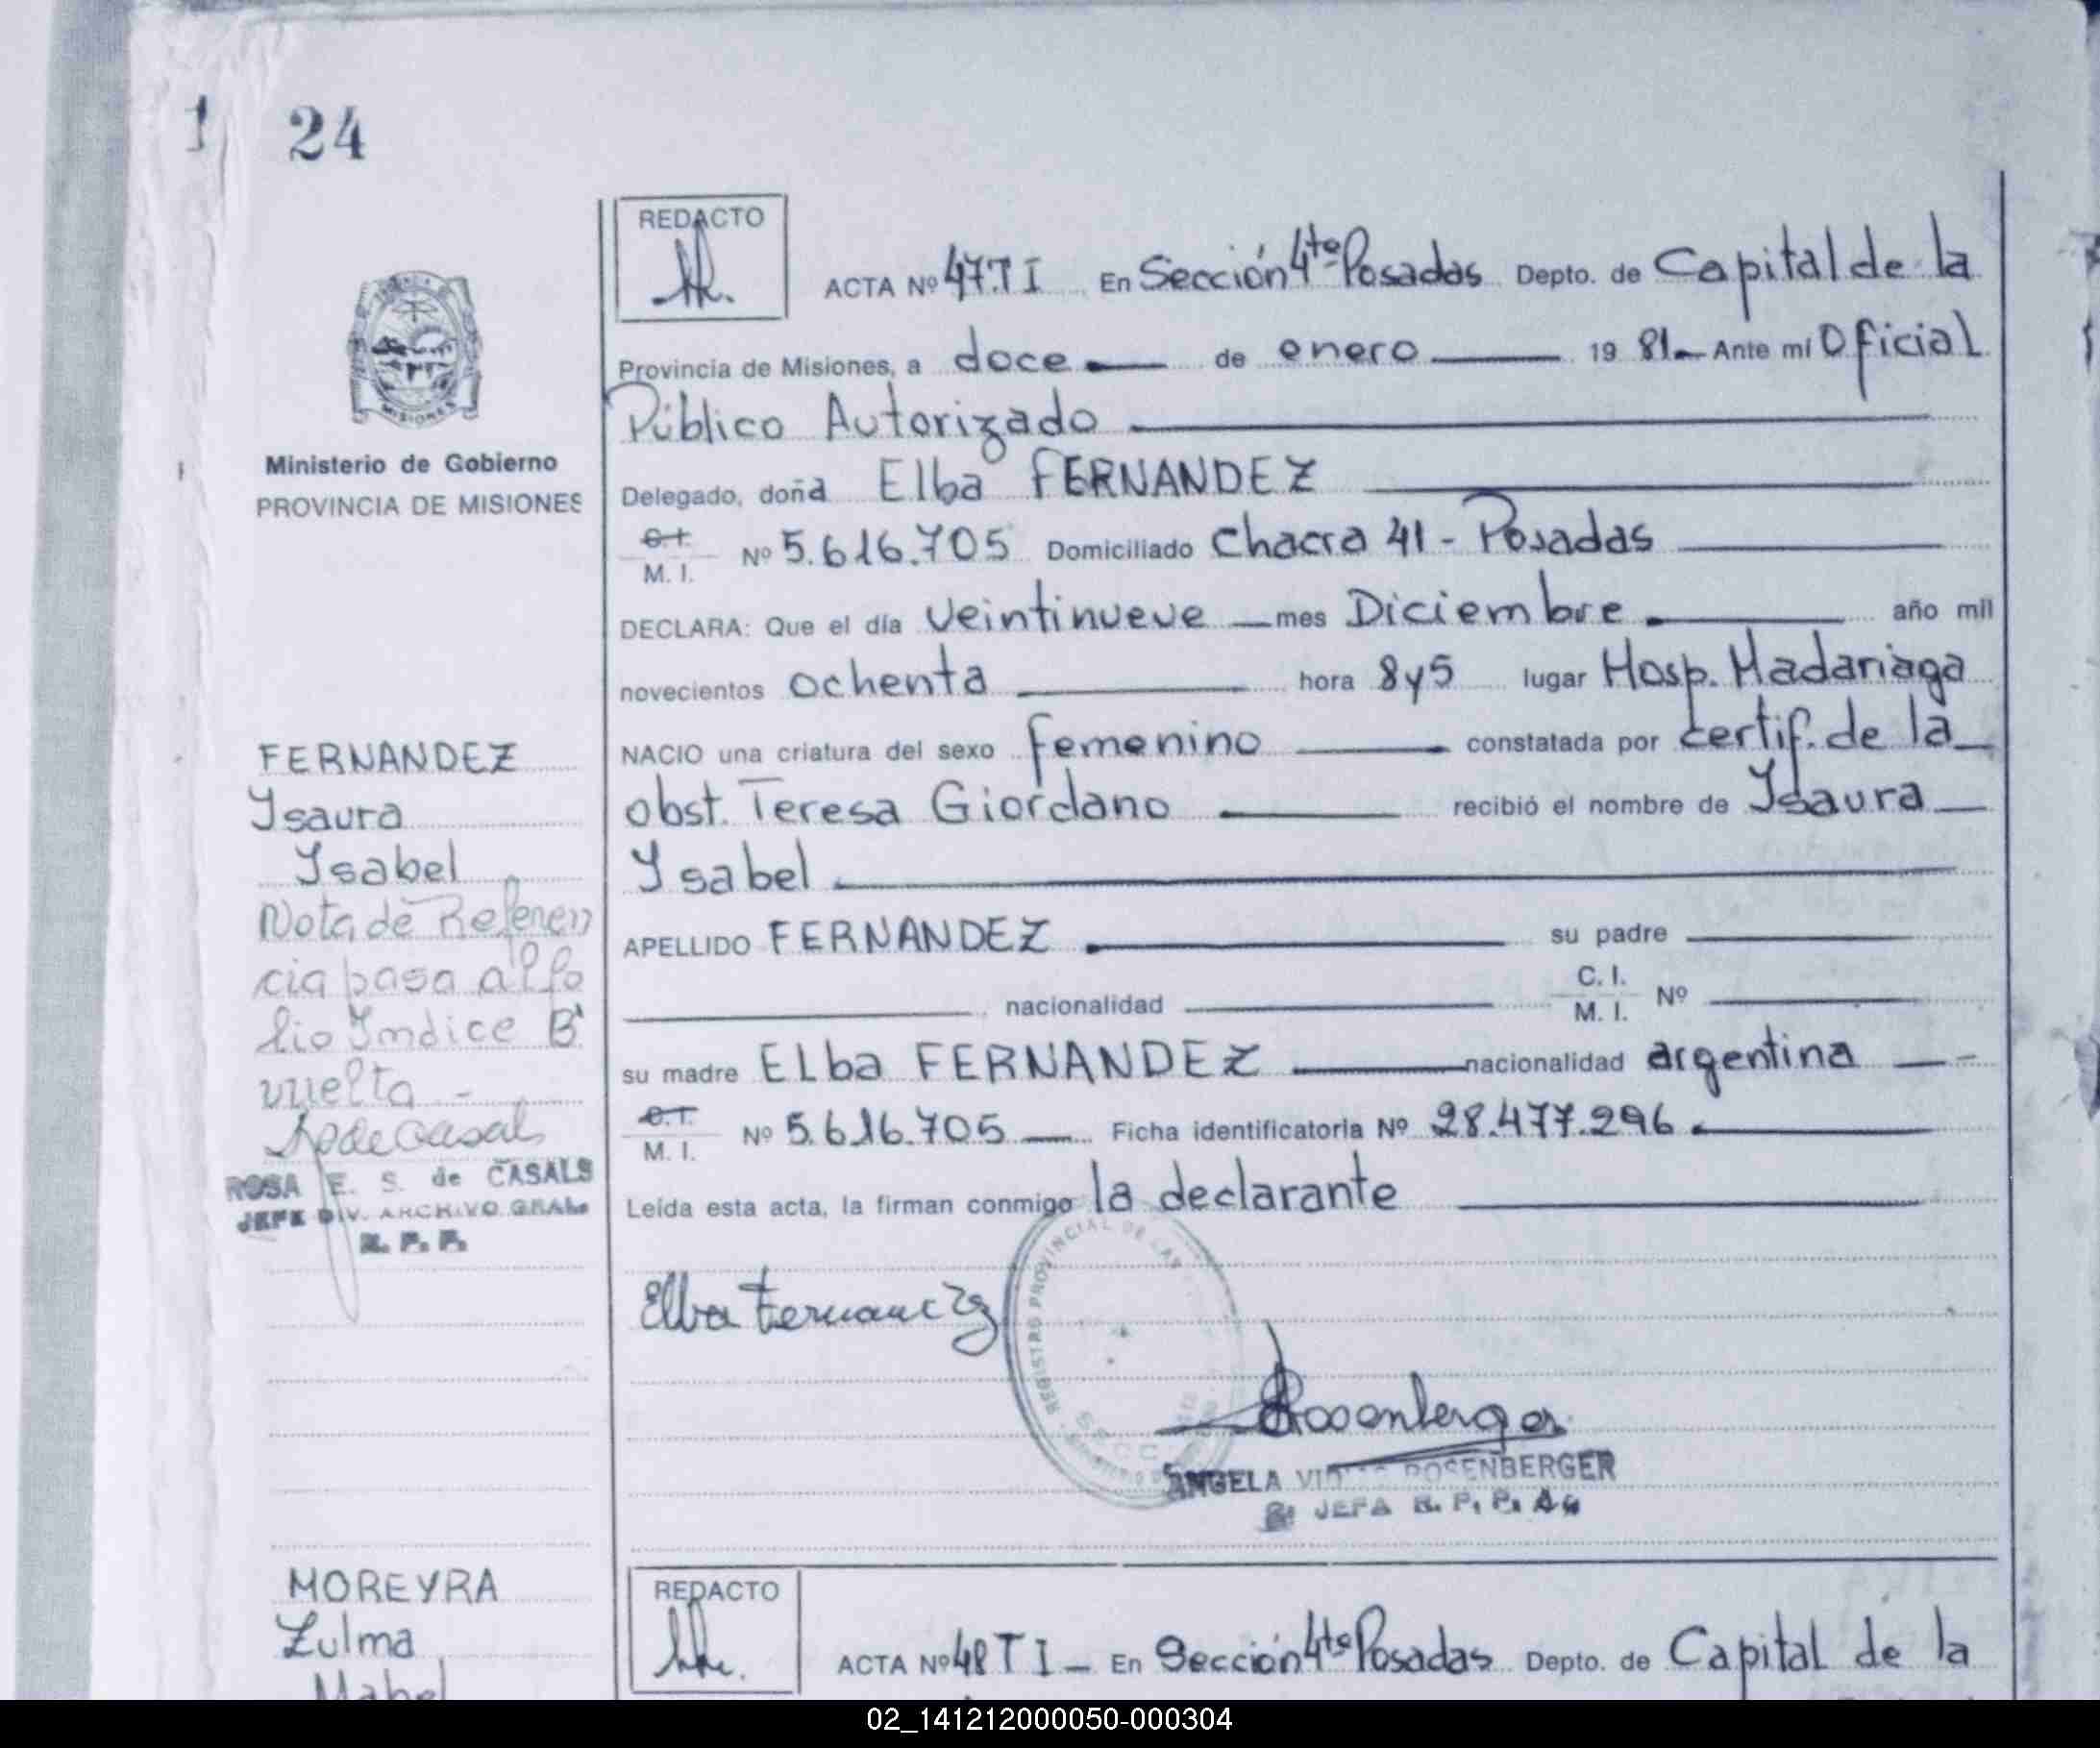 1 24
REDACTO
ACTA Nº 47.T I En Sección 4ta Posadas Depto. de Capital de la
Provincia de Misiones, a doce de enero 19 81 Ante mí Oficial
Público Autorizado
Delegado, doña Elba FERNANDEZ
C.I. M. I. Nº 5.616.705 Domiciliado Chacra 41 - Posadas
DECLARA: Que el día Veintinueve mes Diciembre año mil
novecientos ochenta hora 8y5 lugar Hosp. Madariaga
NACIO una criatura del sexo femenino constatada por certif. de la
obst. Teresa Giordano recibió el nombre de Ysaura
Ysabel
APELLIDO FERNANDEZ su padre
nacionalidad C. I. M. I. Nº
su madre ELba FERNANDEZ nacionalidad argentina
C.I. M. I. Nº 5.616.705 Ficha identificatoria Nº 28.477.296
Leída esta acta, la firman conmigo la declarante
Elba Fernandez
REGISTRO PROVINCIAL DE LAS
Rosenberger
ANGELA ROSENBERGER
JEFA R. P. P.
Ministerio de Gobierno
PROVINCIA DE MISIONES
MISIONES
FERNANDEZ
Ysaura
Ysabel
Nota de Referen
cia pasa al fo
lio Yndice B
vuelta -
ROSA E. S. de CASALS
JEFE DIV. ARCHIVO GRAL.
R. P. P.
MOREYRA
Zulma
Mabel
REDACTO
ACTA Nº 48 T I - En Sección 4ta Posadas Depto. de Capital de la
02_141212000050-000304